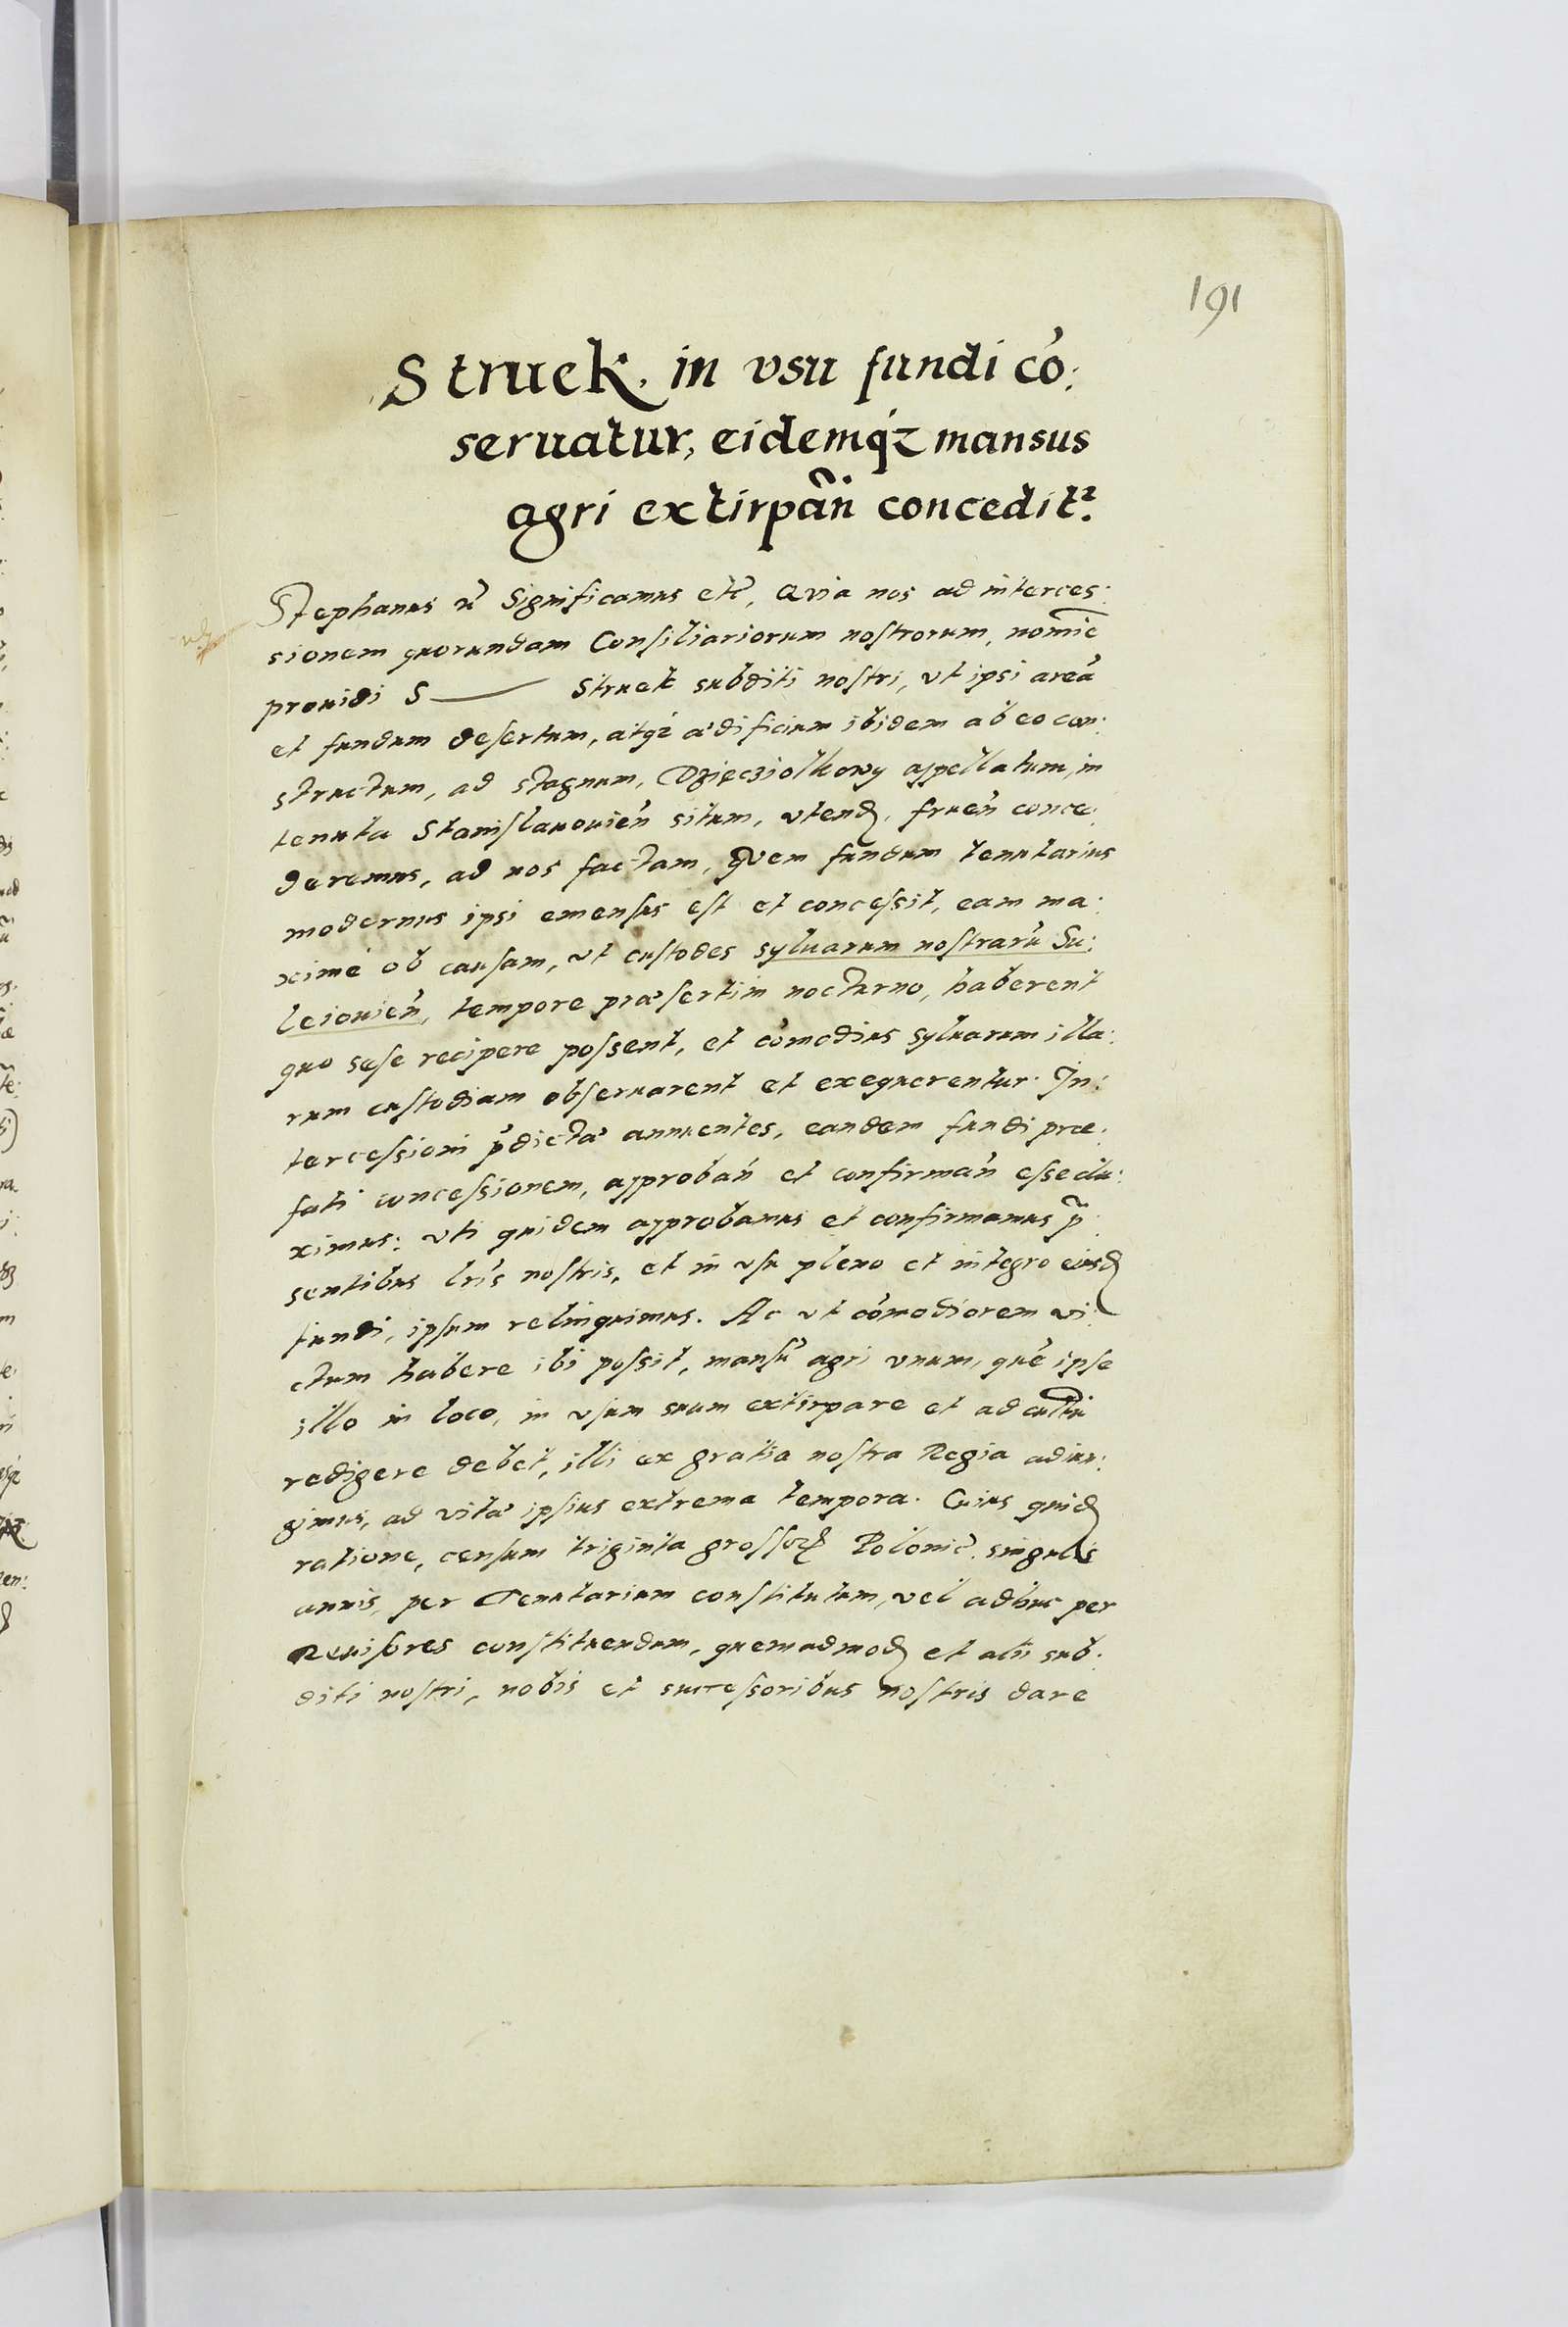 191
Struck. in vsu fundi cõ:
seruatur, eidemq́z mansus
agri extirpan̄ concedit².
Stephanus rc̃ Significamus etc̃, Quia nos ad interces:
sionem quorundam Consiliariorum nostrorum, nomīe
prouidi S—— Struck subditi nostri, vt ipsi areā
et fundum desertum, atq́z ædificium ibidem ab eo con:
structum, ad stagnum, Dzięcziolkowy appellatum, in
tenuta Stanislauouień situm, vtend, fruen̄ conce:
deremus, ad nos factam, Quem fundum tenutarius
modernus ipsi emensus est et concessit, eam ma:
ximè ob causam, vt custodes syluarum nostrarū Su:
leiouień, tempore præsertim nocturno, haberent
quo sese recipere possent, et cõmodius syluarum illa:
rum custodiam obseruarent et exequerentur. In:
tercessioni p̃dictæ annuentes, eandem fundi præ:
fati concessionem, approban̄ et confirman̄ esse du:
ximus: vti quidem approbamus et confirmamus p̃:
sentibus lr̃is nostris, et in vsu pleno et integro eiusd
fundi, ipsum relinquimus. Ac vt cõmodiorem vi:
ctum habere ibi possit, mansū agri vnum, quē ipse
illo in loco, in vsum suum extirpare et ad cultū
redigere debet, illi ex gratia nostra Regia adiun:
gimus, ad vitæ ipsius extrema tempora. Cuius quid
ratione, censum triginta grossor̃ Polonic̃. singulis
annis, per Tenutarium constitutum, vel adhuc per
Reuisores constituendum, quemadmod et alii sub:
diti nostri, nobis et successoribus nostris dare